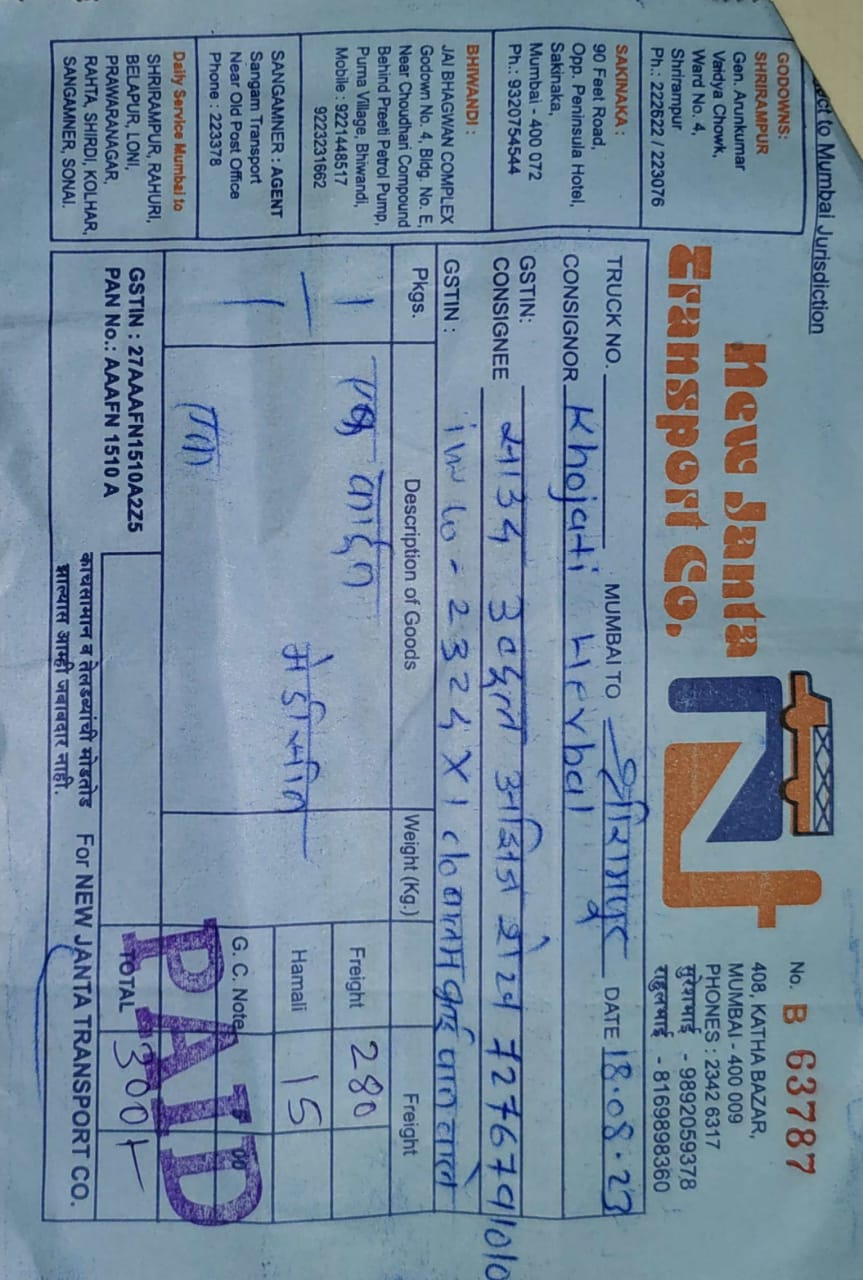 ect to Mumbai Jurisdiction
New Janta
Transport Co.
No. B 63787
408, KATHA BAZAR,
MUMBAI - 400 009
PHONES : 2342 6317
सुरेशभाई - 9892059378
राहुलभाई - 8169898360
GODOWNS:
SHRIRAMPUR
Gen. Arunkumar
Vaidya Chowk,
Ward No. 4,
Shrirampur
Ph.: 222622 / 223076
SAKINAKA :
90 Feet Road,
Opp. Peninsula Hotel,
Sakinaka,
Mumbai - 400 072
Ph.: 9320754544
BHIWANDI :
JAI BHAGWAN COMPLEX
Godown No. 4, Bldg. No. E,
Near Choudhari Compound
Behind Preeti Petrol Pump,
Purna Village, Bhiwandi,
Mobile : 9221448517
9223231662
SANGAMNER : AGENT
Sangam Transport
Near Old Post Office
Phone : 223378
Daily Service Mumbai to
SHRIRAMPUR, RAHURI,
BELAPUR, LONI,
PRAWARANAGAR,
RAHTA, SHIRDI, KOLHAR,
SANGAMNER, SONAI.
TRUCK NO. MUMBAI TO श्रीरामपुर DATE 18.08.23
CONSIGNOR Khojati Herbal
GSTIN:
CONSIGNEE 7276791010
GSTIN :
Pkgs. Description of Goods Weight (Kg.) Freight
1 एक Freight 280
Hamali 15
G. C. Note
TOTAL 300/-
PAID
GSTIN : 27AAAFN1510A2Z5
PAN No.: AAAFN 1510 A
काचसामान व तेलडब्यांची मोडतोड
झाल्यास आम्ही जबाबदार नाही.
For NEW JANTA TRANSPORT CO.